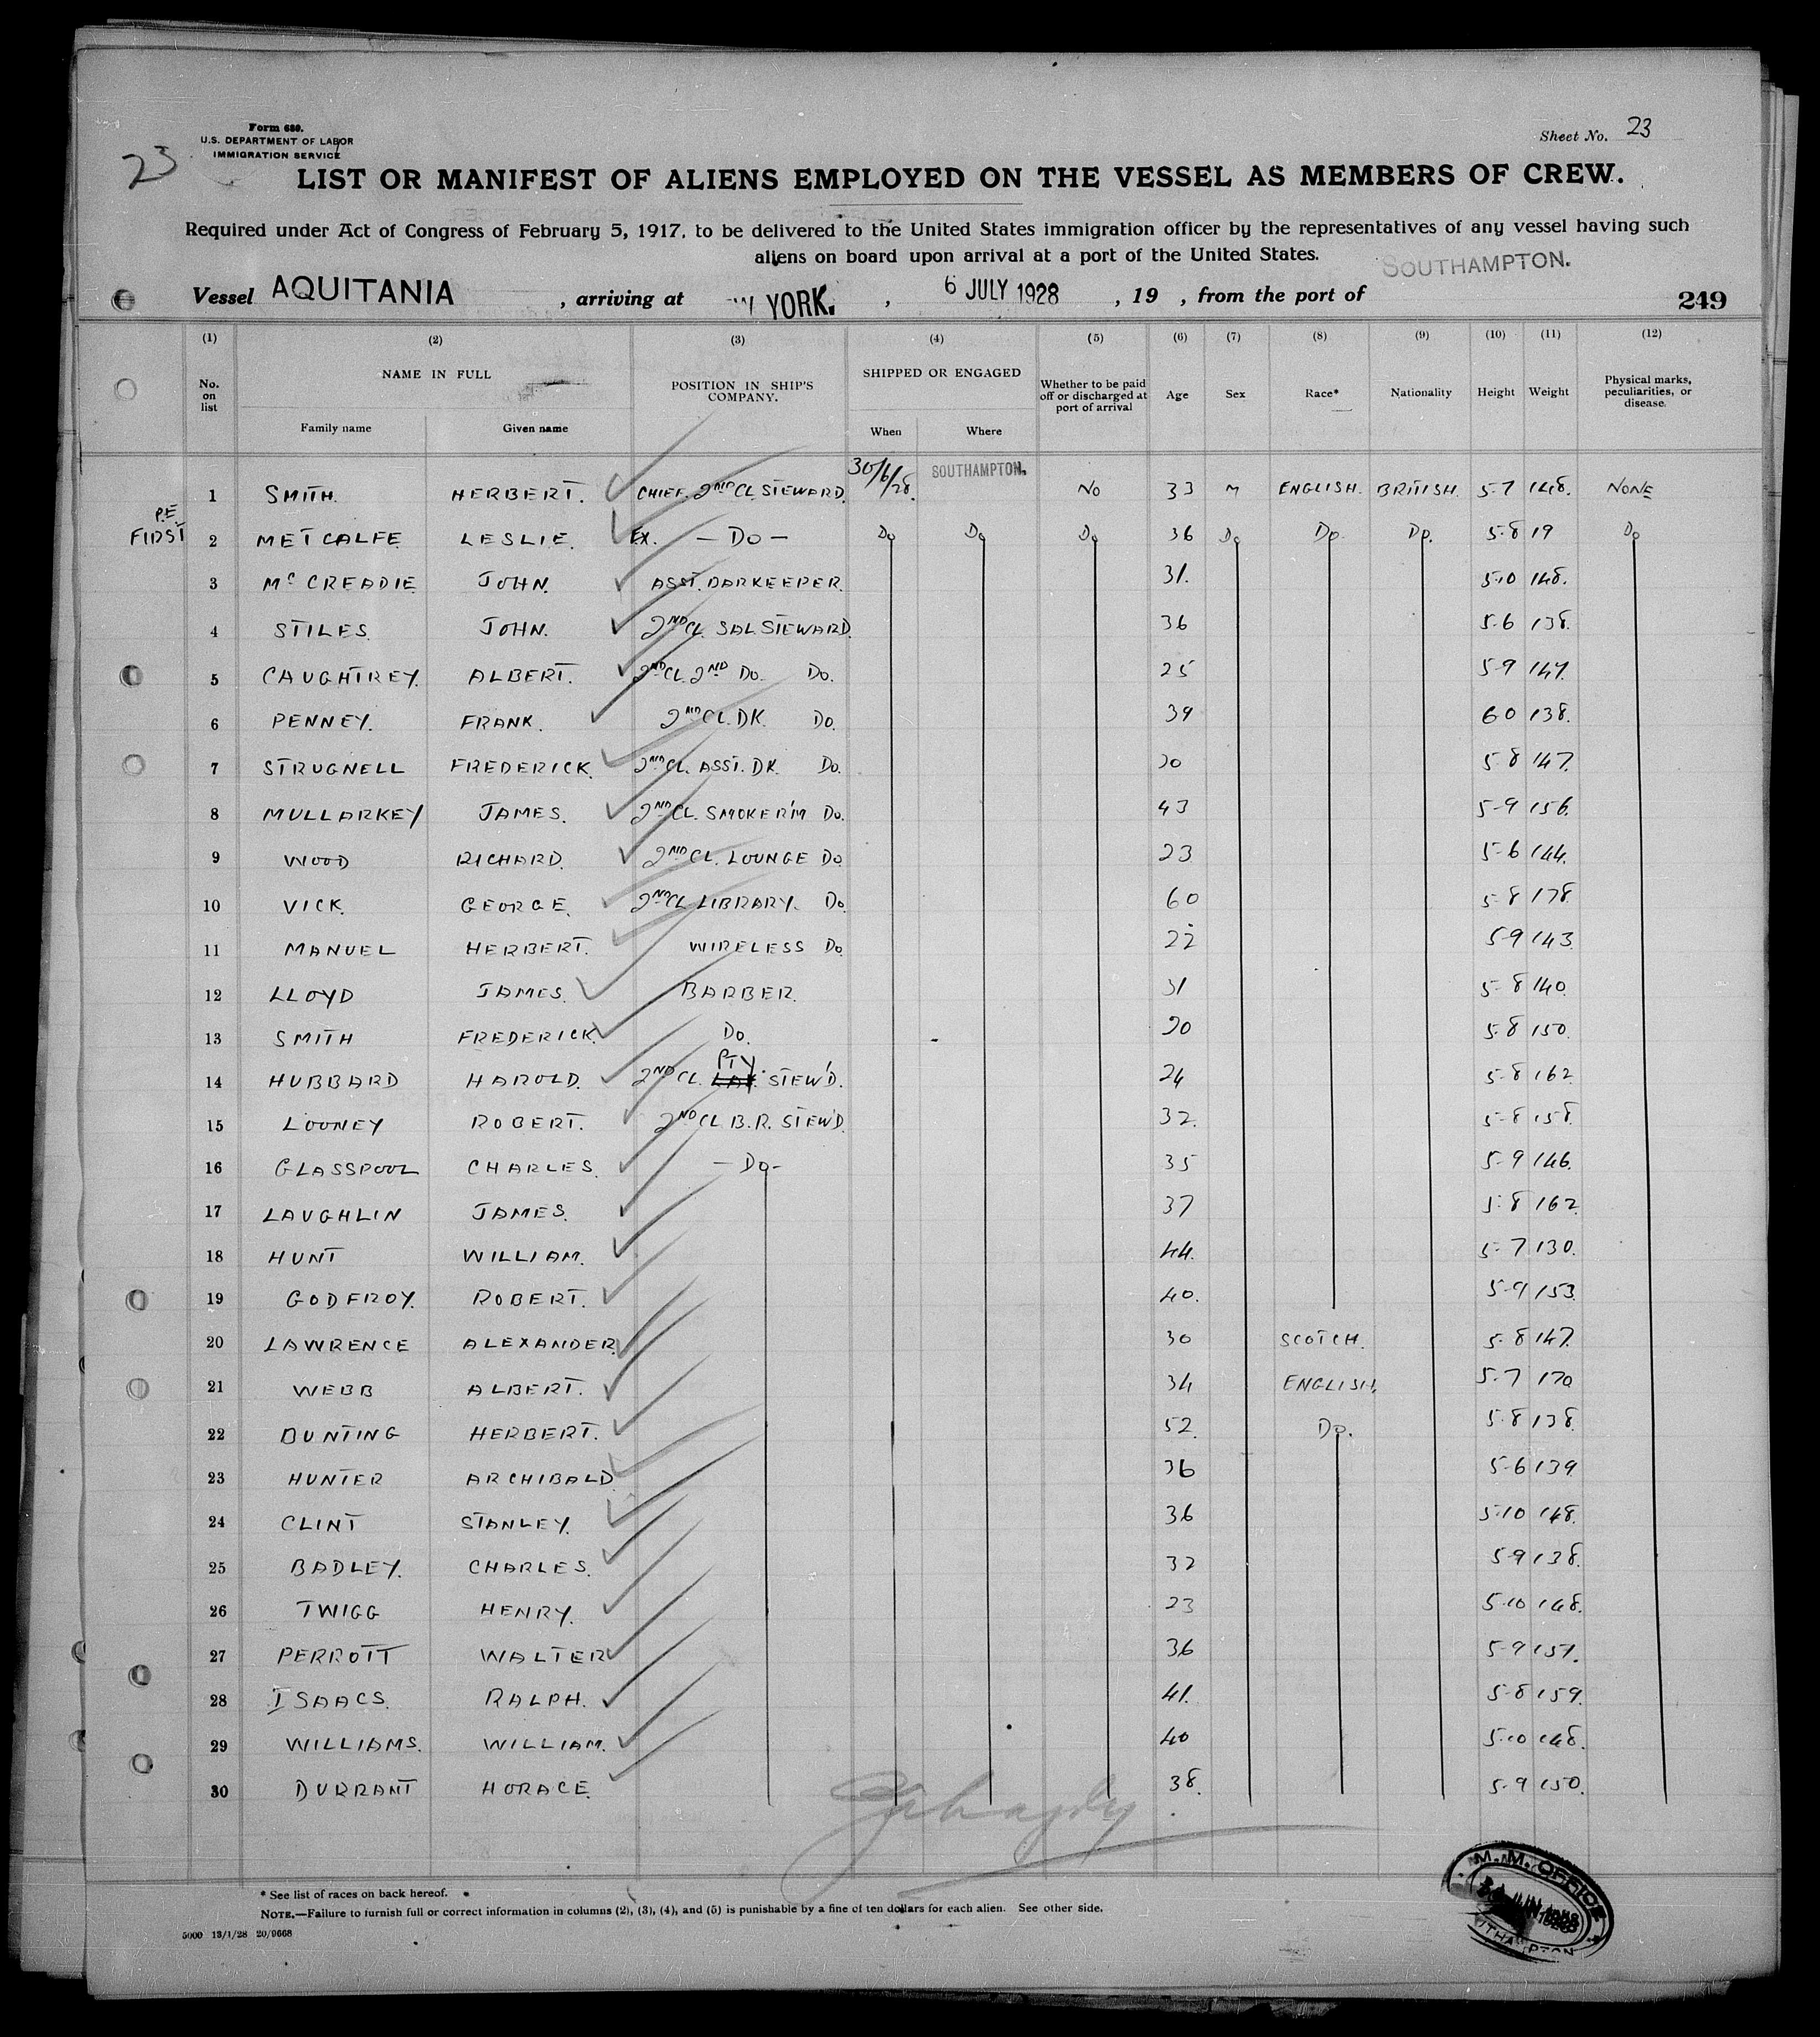 Form 689.
U.S. DEPARTMENT OF LABOR
IMMIGRATION SERVICE
23
Sheet No. 23
LIST OR MANIFEST OF ALIENS EMPLOYED ON THE VESSEL AS MEMBERS OF CREW.
Required under Act of Congress of February 5, 1917, to be delivered to the United States immigration officer by the representatives of any vessel having such
aliens on board upon arrival at a port of the United States.
SOUTHAMPTON.
Vessel AQUITANIA, arriving at W YORK., 6 JULY 1928, 19 , from the port of
249
(1) (2) (3) (4) (5) (6) (7) (8) (9) (10) (11) (12)
No. on list NAME IN FULL POSITION IN SHIP'S COMPANY. SHIPPED OR ENGAGED Whether to be paid off or discharged at port of arrival Age Sex Race* Nationality Height Weight Physical marks, peculiarities, or disease.
Family name Given name When Where
1 SMITH. HERBERT. CHIEF. 2ND CL STEWARD. 30/6/28. SOUTHAMPTON. NO 33 M ENGLISH. BRITISH. 5-7 148. NONE
P.E.
FIRST 2 METCALFE LESLIE. EX. — DO — DO DO DO 36 DO DO DO. 5-8 19 DO
3 McCREADIE JOHN. ASST. BARKEEPER. 31. 5-10 148.
4 STILES. JOHN. 2ND CL. SAL. STEWARD. 36 5-6 138.
5 CAUGHTREY. ALBERT. 2ND CL. 2ND DO. DO. 25 5-9 147.
6 PENNEY. FRANK. 2ND CL. DK. DO. 39 6 0 138.
7 STRUGNELL FREDERICK. 2ND CL. ASST. DK. DO. 20 5-8 147.
8 MULLARKEY JAMES. 2ND CL. SMOKER'M DO. 43 5-9 156.
9 WOOD RICHARD. 2ND CL. LOUNGE DO 23 5-6 144.
10 VICK. GEORGE. 2ND CL LIBRARY. DO. 60 5-8 178.
11 MANUEL HERBERT. WIRELESS DO. 22 5-9 143.
12 LLOYD JAMES. BARBER. 31 5-8 140.
13 SMITH FREDERICK. DO. 20 5-8 150.
14 HUBBARD HAROLD. 2ND CL. PTY. STEW'D. 24 5-8 162.
15 LOONEY ROBERT. 2ND CL B.R. STEW'D. 32. 5-8 158.
16 GLASSPOOL CHARLES. — DO - 35 5-9 146.
17 LAUGHLIN JAMES. 37 5-8 162.
18 HUNT WILLIAM. 44. 5-7 130.
19 GODFROY. ROBERT. 40. 5-9 153.
20 LAWRENCE ALEXANDER. 30 SCOTCH. 5-8 147.
21 WEBB ALBERT. 34 ENGLISH. 5-7 170
22 BUNTING HERBERT. 52. DO. 5-8 138.
23 HUNTER ARCHIBALD. 36 5-6 139.
24 CLINT STANLEY. 36 5-10 148.
25 BADLEY. CHARLES. 32 5-9 138.
26 TWIGG HENRY. 23 5-10 148.
27 PERROTT WALTER 36 5-9 157.
28 ISAACS. RALPH. 41. 5-8 159.
29 WILLIAMS. WILLIAM. 40 5-10 148.
30 DURRANT HORACE. 38. 5-9 150.
M. M. OFFICE
* See list of races on back hereof.
NOTE.—Failure to furnish full or correct information in columns (2), (3), (4), and (5) is punishable by a fine of ten dollars for each alien. See other side.
5000 13/1/28 20/9668